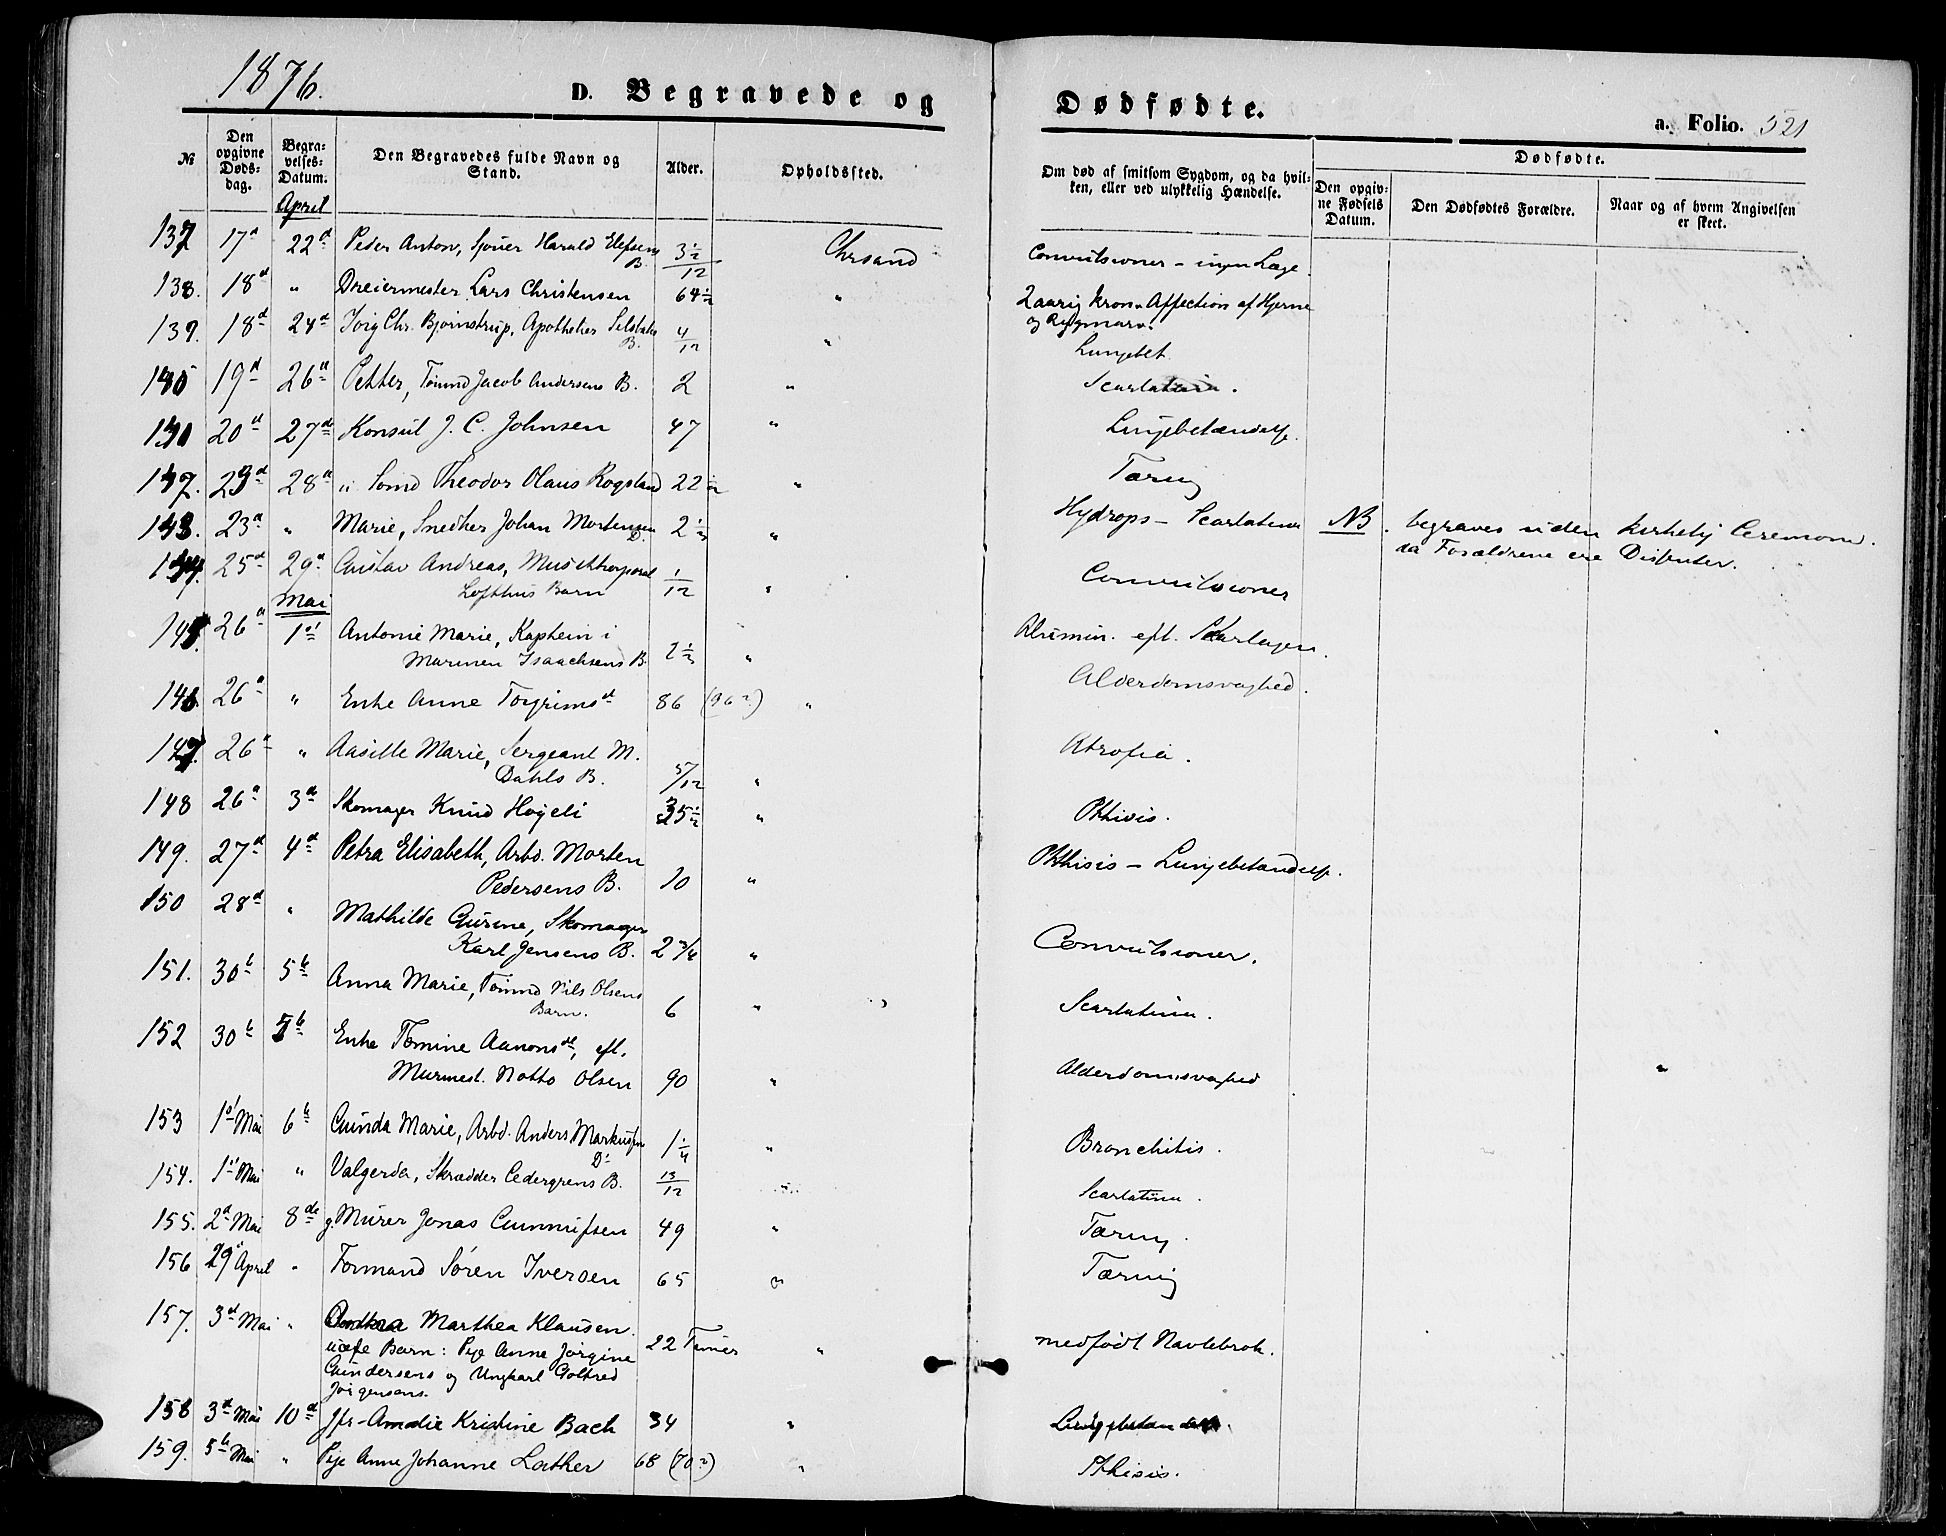 1876.
D. Begravede og Dødfødte.
a. Folio. 321
№
Den opgivne Døds-dag.
Begra-velses-Datum.
Den Begravedes fulde Navn og Stand.
Alder.
Opholdssted.
Om død af smitsom Sygdom, og da hvil-ken, eller ved ulykkelig Hændelse.
Dødfødte.
Den opgiv-ne Fødsels Datum.
Den Dødfødtes Forældre.
Naar og af hvem Angivelsen er skeet.
April
137 17d 22d Peder Anton, Sjouer Harald Elefsens B. 3½/12 Chrsand Convulsioner - ingen Læge.
138. 18d " Dreiermester Lars Christensen 64½ " 2aarig kron. Affection af Hjerne
og Rygmarv.
139. 18d 24d Chr. Bjørnstrup, Apotheker B. 4/12 " Lungebet.
140 19d 26d Petter, Tømmd Jacob Andersens B. 2 " Scarlatina.
141 20d 27de Konsul J. C. Johnsen 47 " Lungebetændelse.
142. 23d 28d u. Sømd Theodor Olaus Rogstand 22½ " Tæring
143. 23d " Marie, Snedker Johan Mortensen D. 2½ " Hydrops - Scarlatina NB. begraves uden kirkelig Ceremoni.
da Forældrene ere Disenter.
144. 25d 29d Gustav Andreas, Musikkorporal
Lofthus Barn 1/12 " Convulsioner
Mai
145. 26d 1ste Antonie Marie, Kaptein i
Marinen Isaachsens B. 2½ " Albumin. eft. Skarlagen.
146 26d " Enke Anne Torgrimsd 86 (96?) " Alderdomsvaghed.
147. 26d " Aasille Marie, Sergeant M.
Dahls B. 5/12 " Atrofia.
148 26d 3de Skomager Knud Høgeli 35½ " Pthisis.
149. 27d 4d Petra Elisabeth, Arbd. Morten
Pedersens B. 10 " Phthisis - Lungebetændelse.
150 28d " Mathilde Gurine, Skomager
Karl Jensens B. 2 " Convulsioner.
151. 30te 5te Anna Marie, Tømmd Nils Olsens
Barn. 6 " Scarlatina.
152 30te 5te Enke Tomine Aanonsd, eft.
Murmest. Notto Olsen 90 " Alderdomsvaghed "
153 1ste Mai 6te Gunda Marie, Arbd. Anders Markussen
D. 1¼ " Bronchitis.
154. 1ste Mai " Valgerda, Skrædder Cedergrens B. 13/12 " Scarlatina.
155. 2d Mai 8de g. Murer Jonas Gunnufsen 49 " Tæring.
156 29de April " Formand Søren Iversen 65 " Tæring
157. 3d Mai " Marthea Klausen.
uægte Barn: Pige Anne Jørgine 22 Timer " medfødt Navlebrok.
Gundersens og Ungkarl Golfred
Jørgensens.
158 3d Mai 10d Jfr Amalie Kristine Bach 34 " Lungebetændelse.
159. 5te Mai " Pige Anne Johanne Lather 68 (70?) " Pthisis.